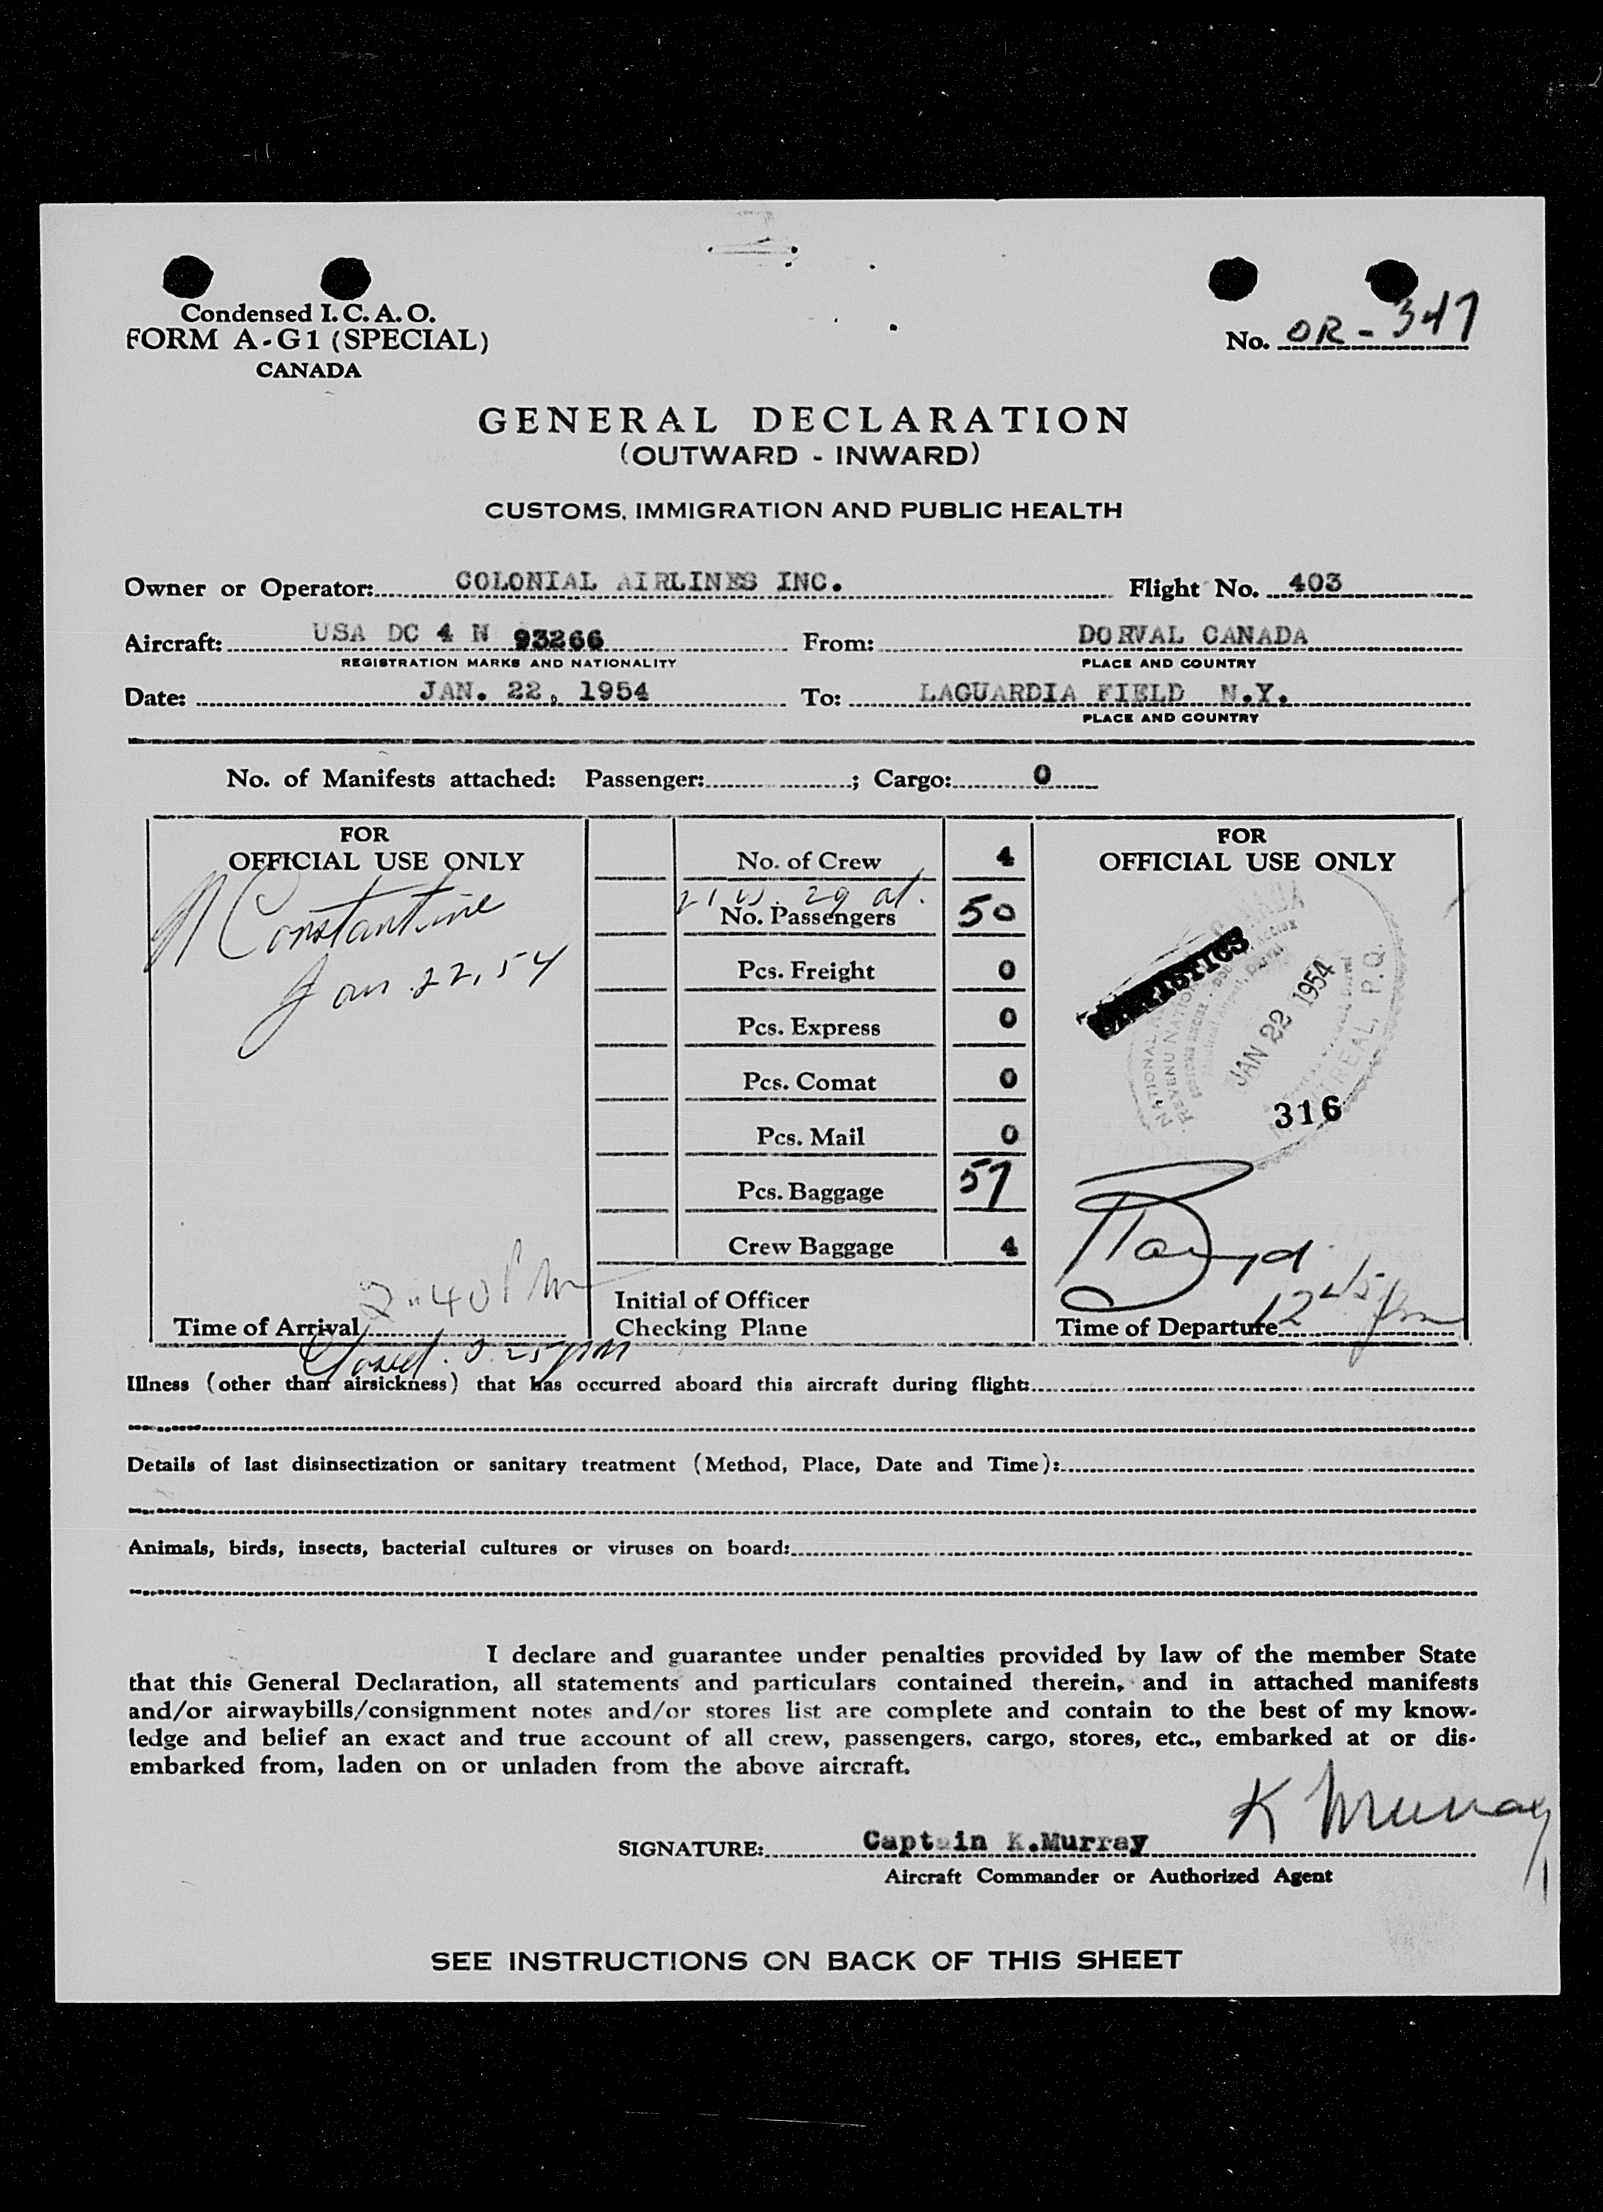 Condensed I. C. A. O.
FORM A-G1 (SPECIAL)
CANADA
No. OR-347
GENERAL DECLARATION
(OUTWARD - INWARD)
CUSTOMS, IMMIGRATION AND PUBLIC HEALTH
Owner or Operator: COLONIAL AIRLINES INC. Flight No. 403
Aircraft: USA DC 4 N 93266 From: DORVAL CANADA
REGISTRATION MARKS AND NATIONALITY PLACE AND COUNTRY
Date: JAN. 22, 1954 To: LAGUARDIA FIELD N.Y.
PLACE AND COUNTRY
No. of Manifests attached: Passenger: ; Cargo: 0
FOR
OFFICIAL USE ONLY
N Constantine
Jan 22, 54
2:40 Pm
Time of Arrival
No. of Crew 4
21 U. 29 al.
No. Passengers 50
Pcs. Freight 0
Pcs. Express 0
Pcs. Comat 0
Pcs. Mail 0
Pcs. Baggage 57
Crew Baggage 4
Initial of Officer
Checking Plane
FOR
OFFICIAL USE ONLY
JAN 22 1954
MONTREAL, P.Q.
316
12 45 pm
Time of Departure
3.25 pm
Illness (other than airsickness) that has occurred aboard this aircraft during flight:
Details of last disinsectization or sanitary treatment (Method, Place, Date and Time):
Animals, birds, insects, bacterial cultures or viruses on board:
I declare and guarantee under penalties provided by law of the member State
that this General Declaration, all statements and particulars contained therein, and in attached manifests
and/or airwaybills/consignment notes and/or stores list are complete and contain to the best of my know-
ledge and belief an exact and true account of all crew, passengers, cargo, stores, etc., embarked at or dis-
embarked from, laden on or unladen from the above aircraft.
K Murray
SIGNATURE: Captain K.Murray
Aircraft Commander or Authorized Agent
SEE INSTRUCTIONS ON BACK OF THIS SHEET